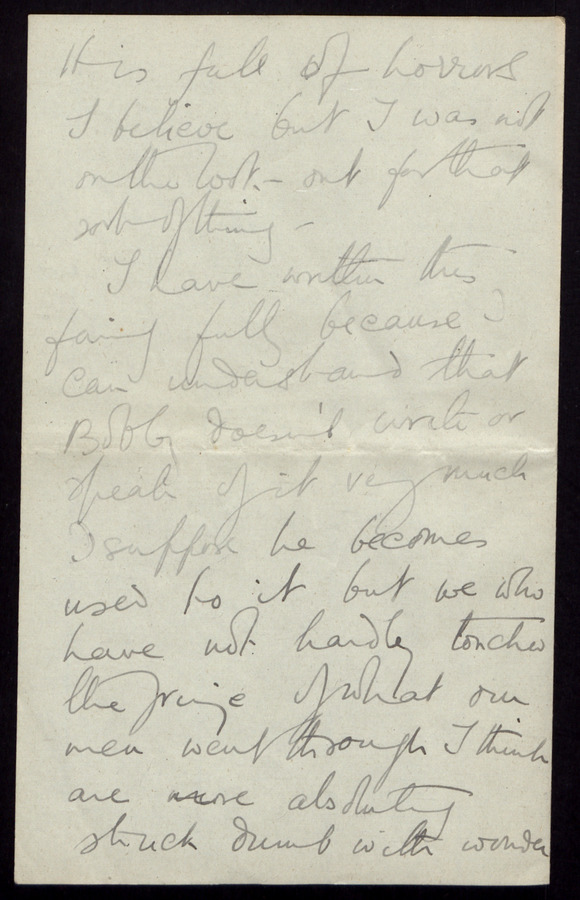 It is full of horrors
I believe but I was not
on the look - out for that
sort of thing -
I have written this
fairly fully because I
can understand that
Bobby doesn't write or
speak of it very much
I suppose he becomes
used to it but we who
have not hardly touched
the fringe of what our
men went through I think
are more absolutely
struck dumb with wonder